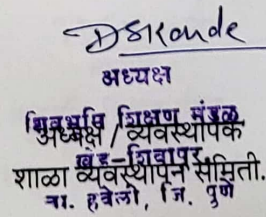 अध्यक्ष
शिवभूमि शिक्षण मंडळ
अध्यक्ष / व्यवस्थापक
खेड-शिवापूर,
शाळा व्यवस्थापन समिती.
ता. हवेली, जि. पुणे